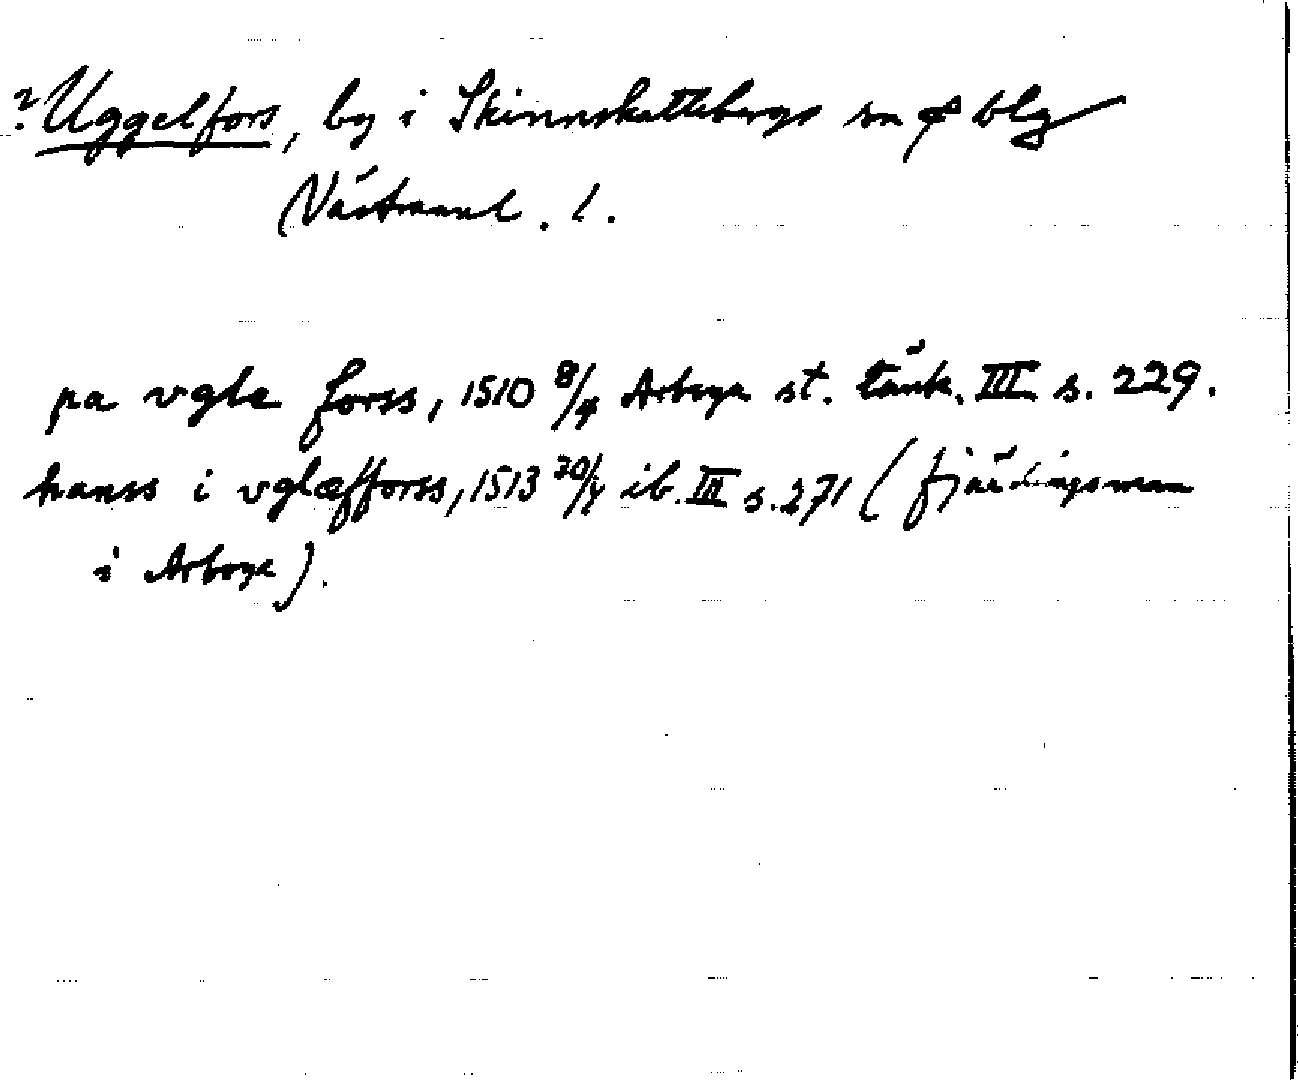 ? Uggelfors, by i Skinnskattebergs sn o blg
Västmanl. l.
pa vgle forss, 1510 8/4 Arboga st. tänk. III s. 229.
hanss i vglæfforss, 1513 20/4 ib. III s. 271 (fjärdingsman
i Arboga).